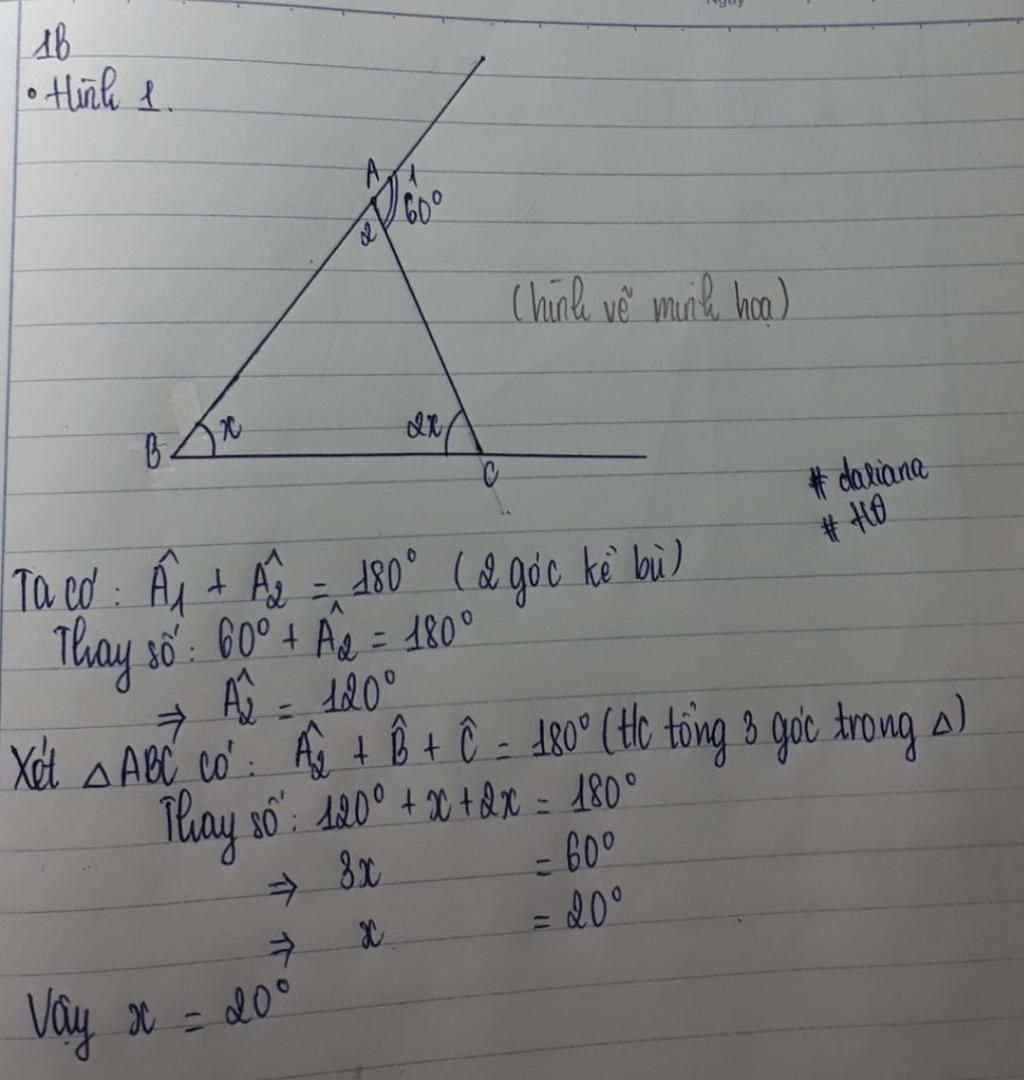 1B
• Hình 1.
A 1
60°
2
(hình vẽ minh hoạ)
B x 2x C
# dariana
# HĐ
Ta có: Â₁ + Â₂ = 180° (2 góc kề bù)
Thay số: 60° + Â₂ = 180°
⇒ Â₂ = 120°
Xét △ABC có: Â₂ + B̂ + Ĉ = 180° (t/c tổng 3 góc trong △)
Thay số: 120° + x + 2x = 180°
⇒ 3x = 60°
⇒ x = 20°
Vậy x = 20°